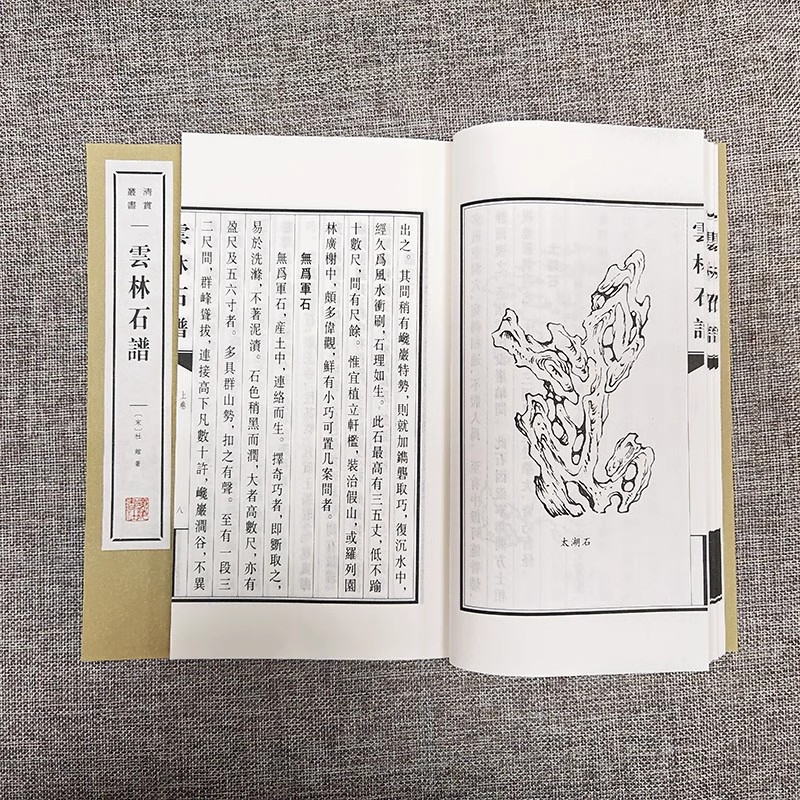 清賞
叢書
雲林石譜
〔宋〕杜綰 著
太湖石
雲林石譜
出之。其間稍有巉巖特勢，則就加鐫礱取巧，復沉水中，
經久爲風水衝刷，石理如生。此石最高有三五丈，低不踰
十數尺，間有尺餘。惟宜植立軒檻，裝治假山，或羅列園
林廣榭中，頗多偉觀，鮮有小巧可置几案間者。
無爲軍石
無爲軍石，産土中，連絡而生。擇奇巧者，即斷取之，
易於洗滌，不著泥漬。石色稍黑而潤，大者高數尺，亦有
盈尺及五六寸者。多具群山勢，扣之有聲。至有一段三
二尺間，群峰聳拔，連接高下凡數十許，巉巖澗谷，不異
雲林石譜
上卷
八